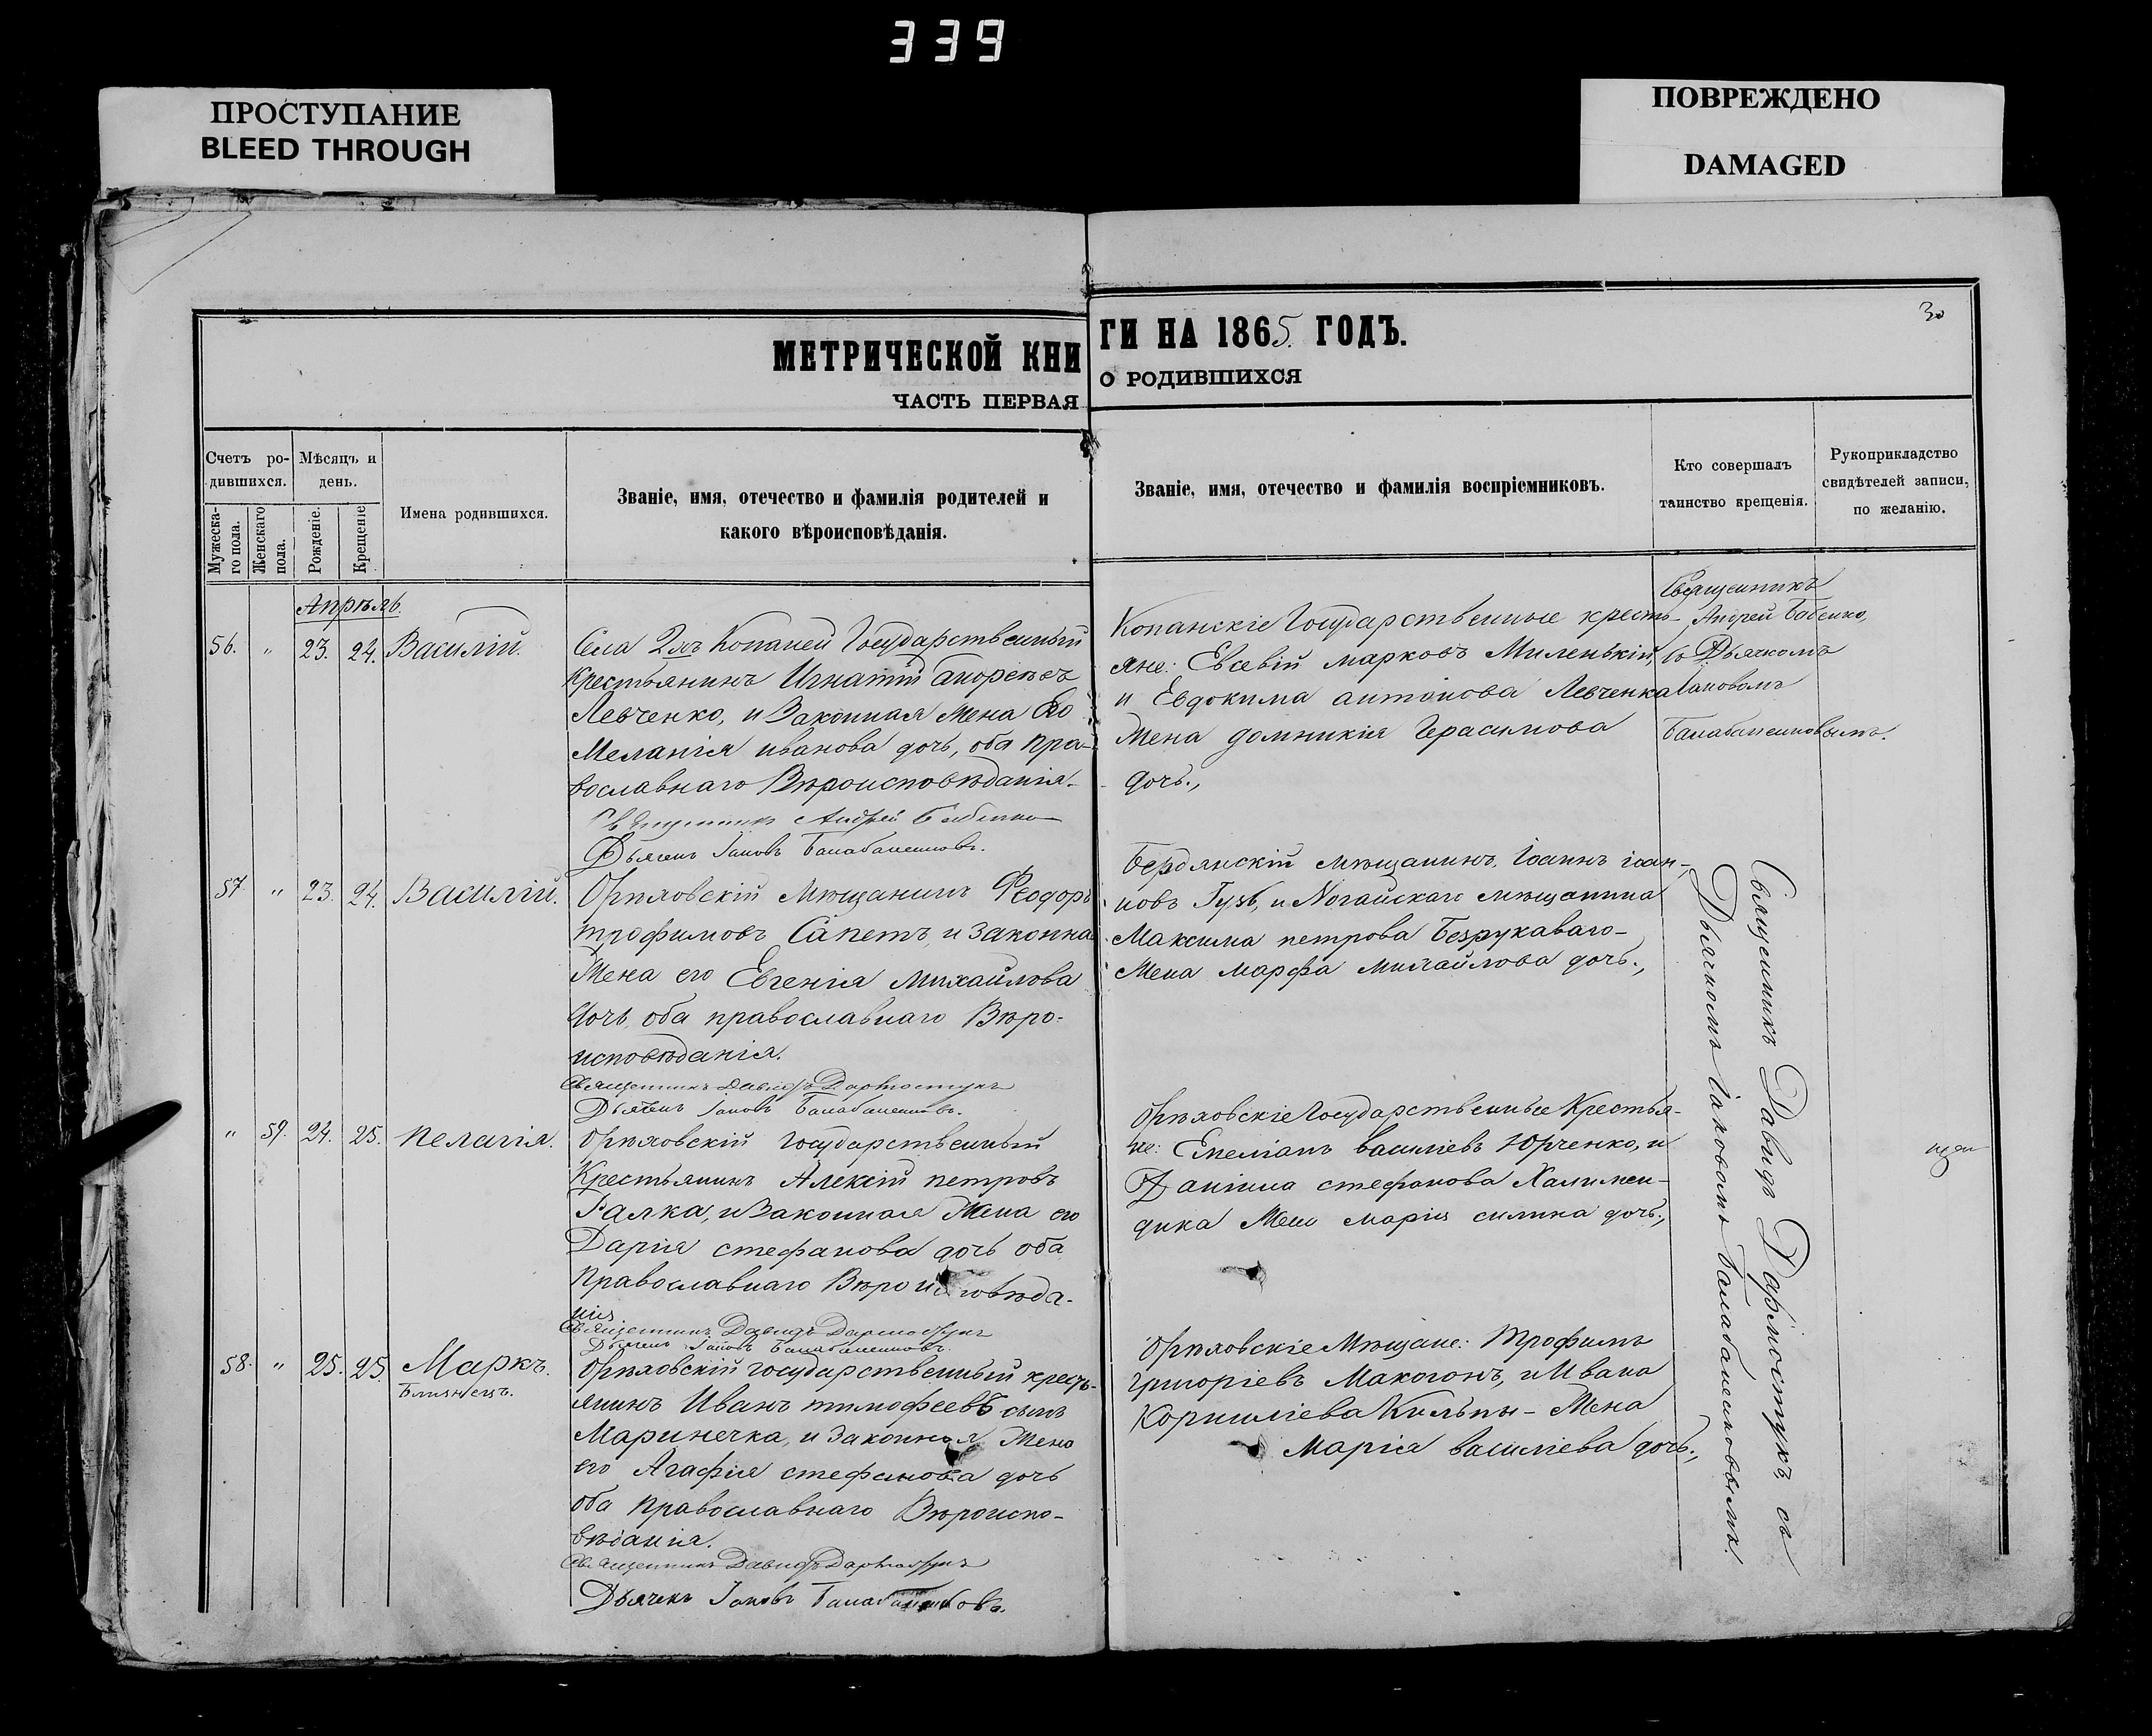 339
ПРОСТУПАНИЕ
BLEED THROUGH
ПОВРЕЖДЕНО
DAMAGED
МЕТРИЧЕСКОЙ КНИ
ЧАСТЬ ПЕРВАЯ
Счетъ ро-
дившихся.
Мѣсяцъ и
день.
Мужеска-
го пола.
Женскаго
пола.
Рожденіе.
Крещеніе
Имена родившихся.
Званіе, имя, отечество и фамилія родителей и
какого вѣроисповѣданія.
Апрѣль.
56. " 23. 24. Василій.
Села Копаней Государственный
Крестьянинъ Игнатій
Левченко, и Законная Жена Его
Меланія иванова дочь, оба Пра-
вославнаго Вѣроисповѣданія.
Священникъ Андрей Бабенко
Дьячекъ Іаковъ Балабаненковъ.
57 " 23. 24. Василій.
Орѣховскій Мѣщанинъ Феодоръ
трофимовъ Сапетъ, и Законна
Жена его Евгенія Михайлова
дочь, оба православнаго Вѣро-
исповѣданія.
Священникъ Давидъ
Дьячекъ Іаковъ Балабаненковъ.
" 59. 24. 25. Пелагія.
Орѣховскій Государственный
Крестьянинъ Алексій петровъ
Галка, и Законная Жена его
Дарія стефанова дочь оба
Православнаго Вѣроисповѣда-
нія
Священникъ Давидъ
Дьячекъ Іаковъ Балабаненковъ.
58. " 25. 25 Маркъ.
Близнецъ.
Орѣховскій государственный кресть-
янинъ Иванъ тимофеевъ сынъ
Маринечка, и Законная Жена
его Агафія стефанова дочь
оба Православнаго Вѣроиспо-
вѣданія.
Священникъ Давидъ
Дьячекъ Іаковъ Балабаненковъ.
30
ГИ НА 1865. ГОДЪ.
О РОДИВШИХСЯ
Званіе, имя, отечество и фамилія воспріемниковъ.
Кто совершалъ
таинство крещенія.
Рукоприкладство
свидѣтелей записи,
по желанію.
Копанскіе Государственные кресть-
яне: Евсевій марковъ Миленькій,
и Евдокима антонова Левченка
Жена домникія Герасимова
дочь.,
Священникъ
Андрей Бабенко,
съ Дьячкомъ
Іаковомъ
Балабаненковымъ.
Бердянскій мѣщанинъ, Іоаннъ іоан-
новъ Гузь, и Ногайскаго мѣщанина
Максима петрова Безрукаваго-
Жена марфа михайлова дочь.,
Орѣховскіе Государственные Крестья-
не: Емеліанъ василіевъ Юрченко, и
Даніила стефанова
Жена марія силина дочь.,
Орѣховскіе Мѣщане: Трофимъ
григоріевъ Макогонъ, и Ивана
Корниліева Кильпы- Жена
Марія василіева дочь.,
Священникъ Давидъ съ
Дьячкомъ Іаковомъ Балабаненковымъ.